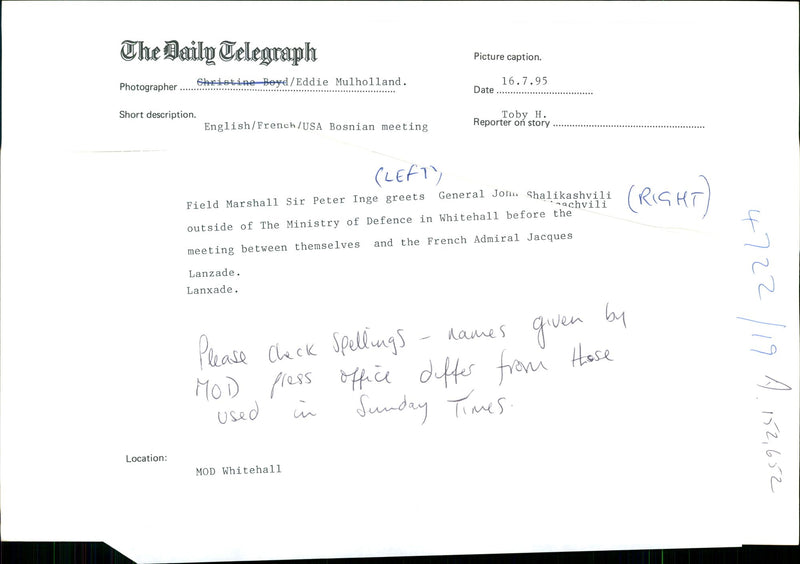 The Daily Telegraph
Picture caption.
Photographer Christine Boyd/Eddie Mulholland.
Date 16.7.95
Short description.
English/French/USA Bosnian meeting
Toby H.
Reporter on story
(LEFT)
Field Marshall Sir Peter Inge greets General John Shalikashvili
(RIGHT)
outside of The Ministry of Defence in Whitehall before the
meeting between themselves and the French Admiral Jacques
Lanzade.
Lanxade.
Please check spellings - names given by
MOD press office differ from those
used in Sunday Times.
Location:
MOD Whitehall
4722/19 A.152,652